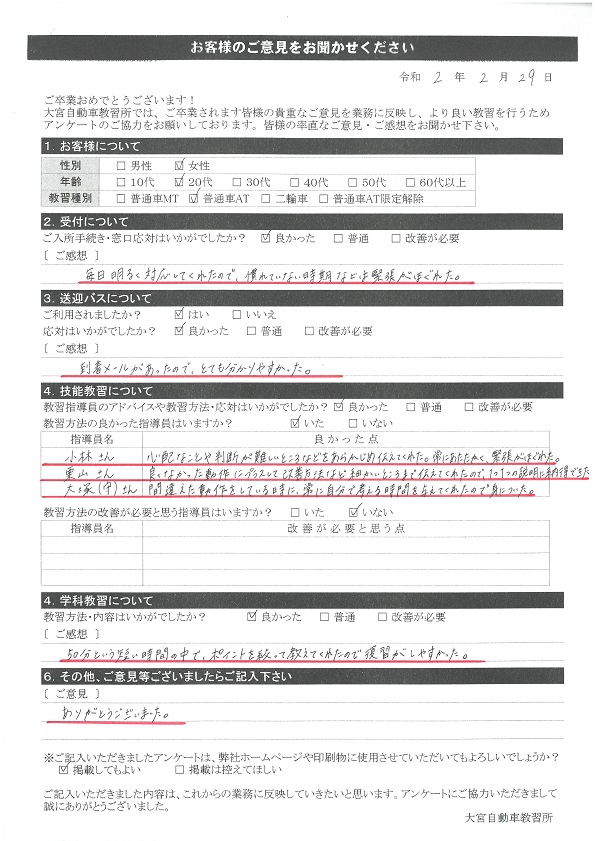 お客様のご意見をお聞かせください
令和 2 年 2 月 29 日
ご卒業おめでとうございます！
大宮自動車教習所では、ご卒業されます皆様の貴重なご意見を業務に反映し、より良い教習を行うため
アンケートのご協力をお願いしております。皆様の率直なご意見・ご感想をお聞かせ下さい。
1. お客様について
性別 □ 男性 ☑ 女性
年齢 □ 10代 ☑ 20代 □ 30代 □ 40代 □ 50代 □ 60代以上
教習種別 □ 普通車MT ☑ 普通車AT □ 二輪車 □ 普通車AT限定解除
2. 受付について
ご入所手続き・窓口応対はいかがでしたか？ ☑ 良かった □ 普通 □ 改善が必要
［ ご感想 ］
毎日明るく対応してくれたので、慣れていない時期などは緊張がほぐれた。
3. 送迎バスについて
ご利用されましたか？ ☑ はい □ いいえ
応対はいかがでしたか？ ☑ 良かった □ 普通 □ 改善が必要
［ ご感想 ］
到着メールがあったので、とても分かりやすかった。
4. 技能教習について
教習指導員のアドバイスや教習方法・応対はいかがでしたか？ ☑ 良かった □ 普通 □ 改善が必要
教習方法の良かった指導員はいますか？ ☑ いた □ いない
指導員名 良かった点
小林さん 心配なことや判断が難しいところなどをあらかじめ伝えてくれた。常にあたたかく、緊張がほぐれた。
栗山さん 良くなかった動作にプラスして改善方法など細かいところまで伝えてくれたので、1つ1つの説明に納得できた
大塚(守)さん 間違えた動作をしている時に、常に自分で考える時間を与えてくれたので身についた。
教習方法の改善が必要と思う指導員はいますか？ □ いた ☑ いない
指導員名 改善が必要と思う点
4. 学科教習について
教習方法・内容はいかがでしたか？ ☑ 良かった □ 普通 □ 改善が必要
［ ご感想 ］
50分という短い時間の中で、ポイントを絞って教えてくれたので復習がしやすかった。
6. その他、ご意見等ございましたらご記入下さい
［ ご意見 ］
ありがとうございました。
※ご記入いただきましたアンケートは、弊社ホームページや印刷物に使用させていただいてもよろしいでしょうか？
☑ 掲載してもよい □ 掲載は控えてほしい
ご記入いただきました内容は、これからの業務に反映していきたいと思います。アンケートにご協力いただきまして
誠にありがとうございました。
大宮自動車教習所